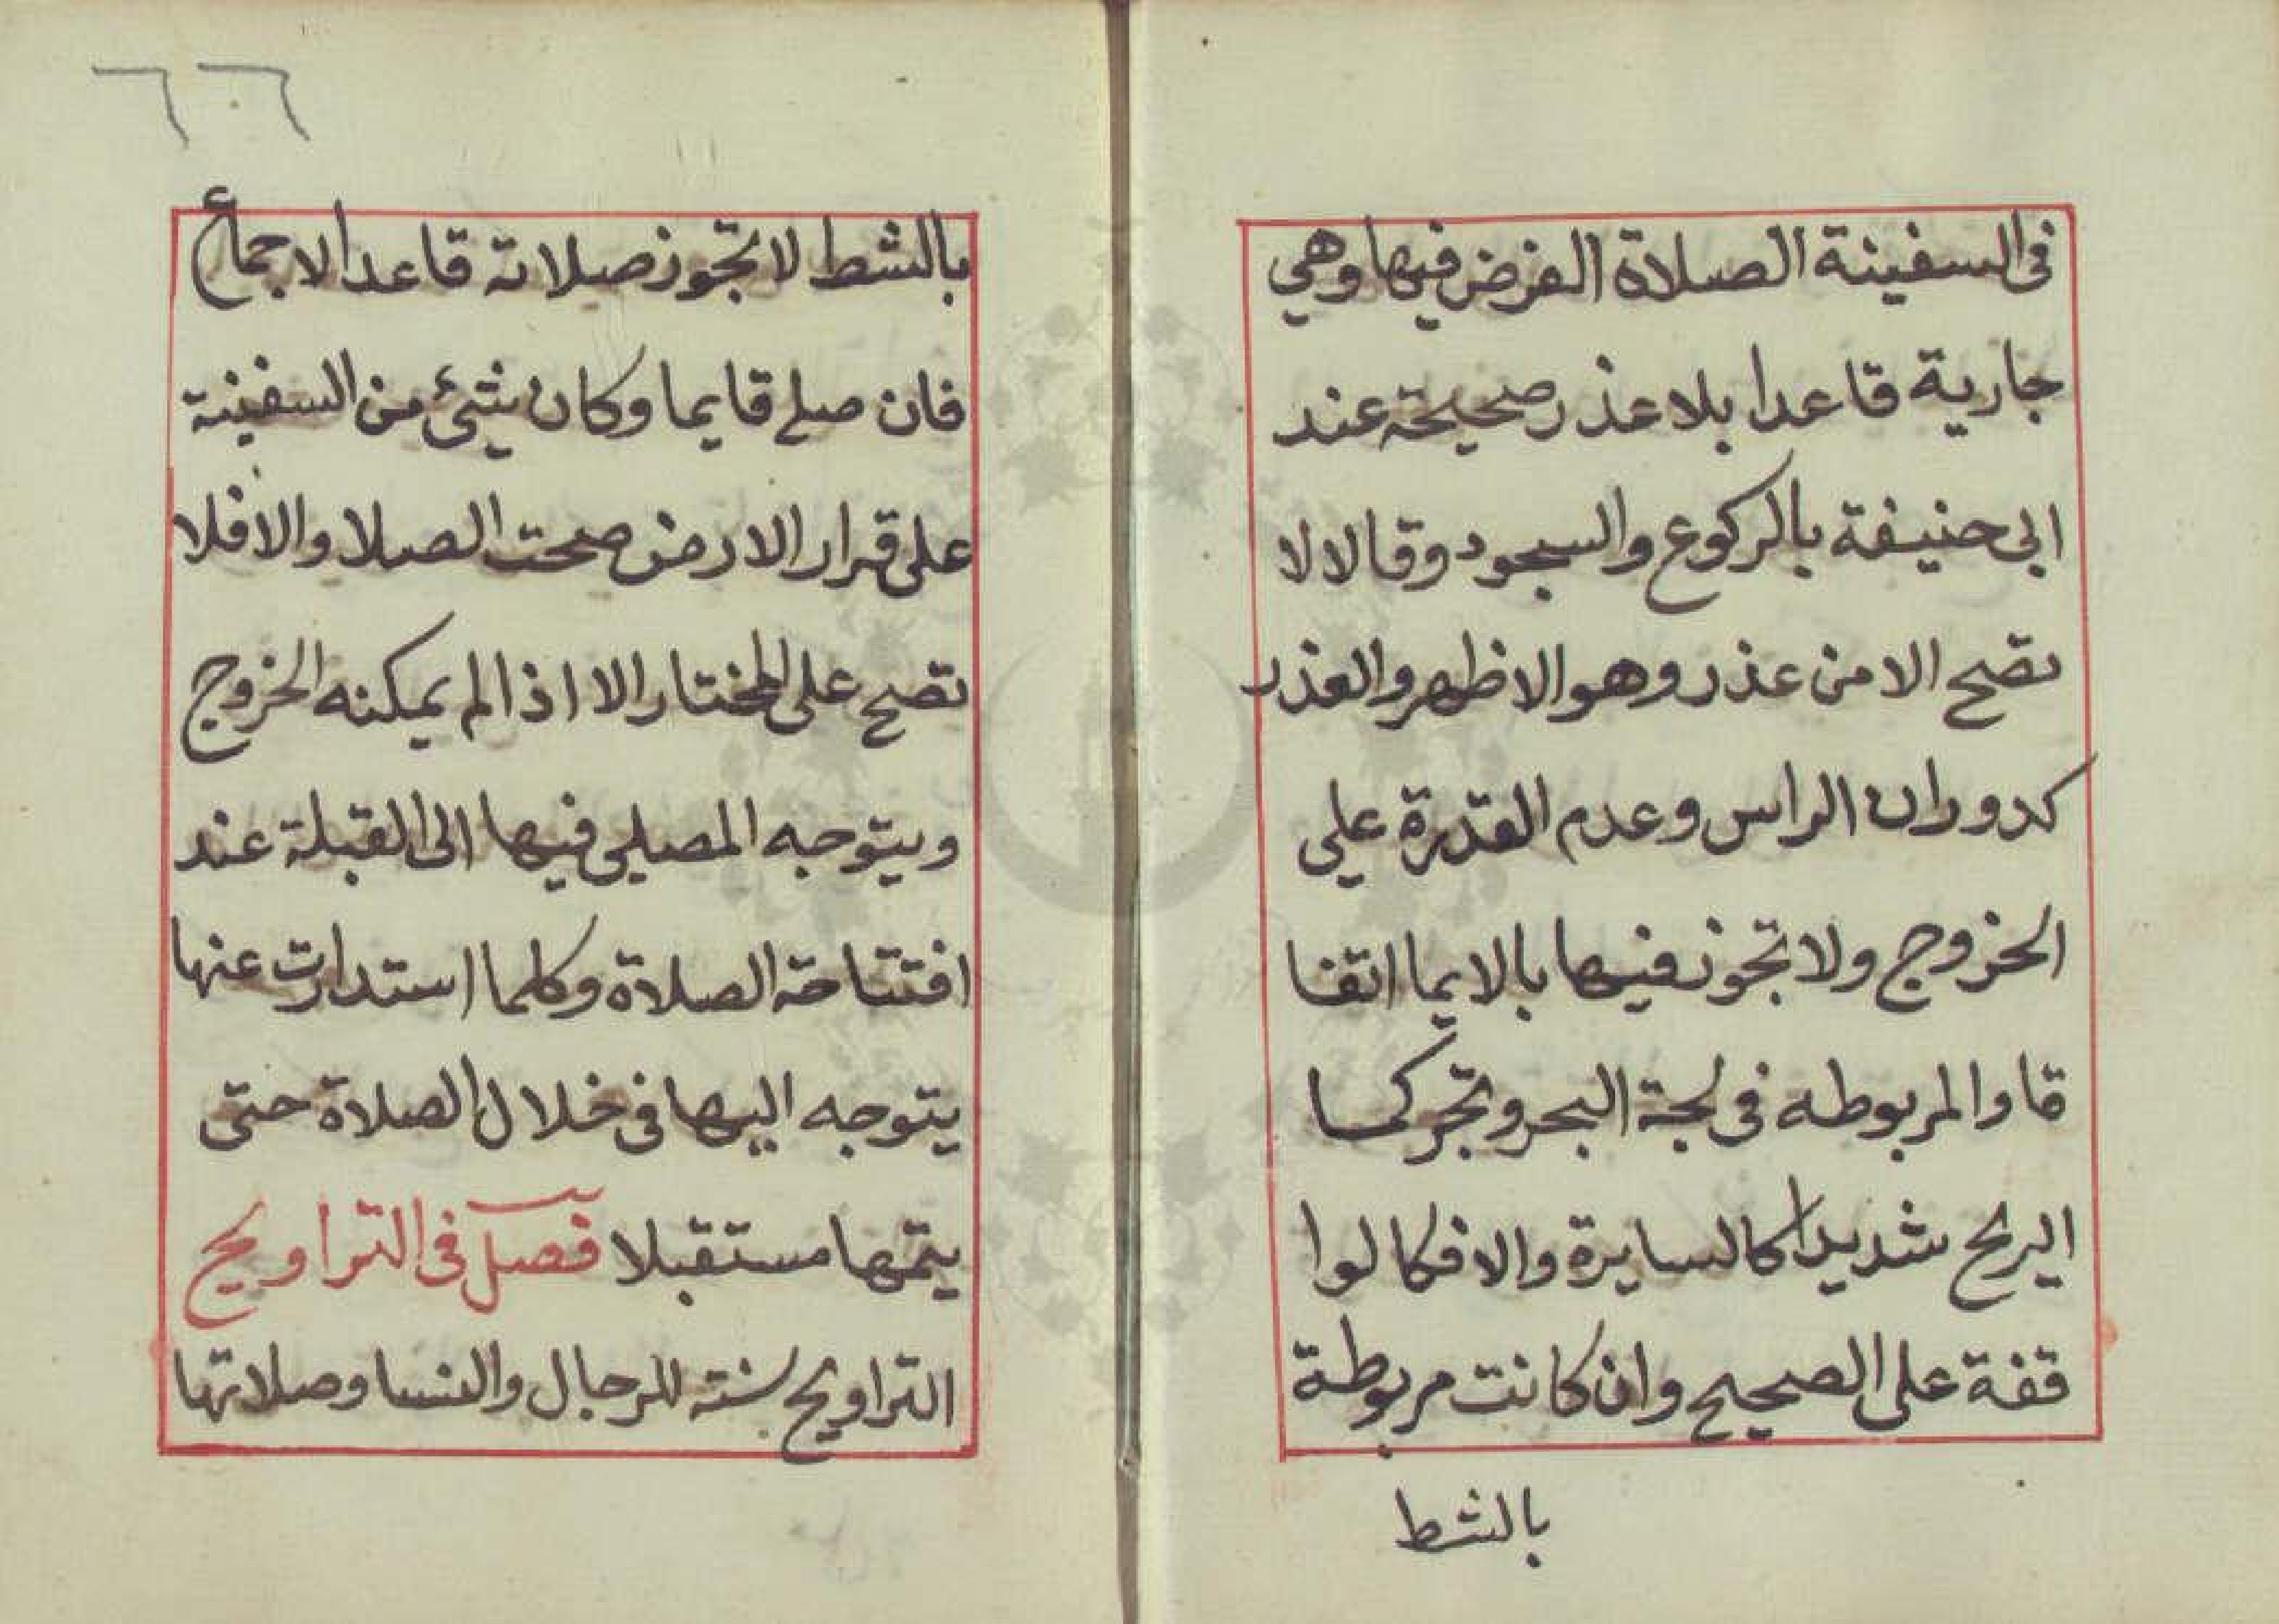 في السفينة الصلاة الفرض فيها وهي
جارية قاعدا بلا عذر صحيحة عند
ابي حنيفة بالركوع والسجود وقالا لا
تصح الا من عذر وهو الاظهر والعذر
كدوران الراس وعدم القدرة على
الخروج ولا تجوز فيها بالايما اتفا
قا والمربوطه في لجة البحر وتحركها
الريح شديدا كالسايرة والا فكالوا
قفة على الصحيح وان كانت مربوطة
بالشط
٦٦
بالشط لا تجوز صلاته قاعدا الاجماع
فان صلى قايما وكان شئ من السفينة
على قرار الارض صحت الصلا والا فلا
تصح على المختار الا اذا لم يمكنه الخروج
ويتوجه المصلي فيها الى القبلة عند
افتتاحه الصلاة وكلما استدارت عنها
يتوجه اليها في خلال الصلاة حتى
يتمها مستقبلا فصل في التراويح
التراويح سنته للرجال والنسا وصلاتها